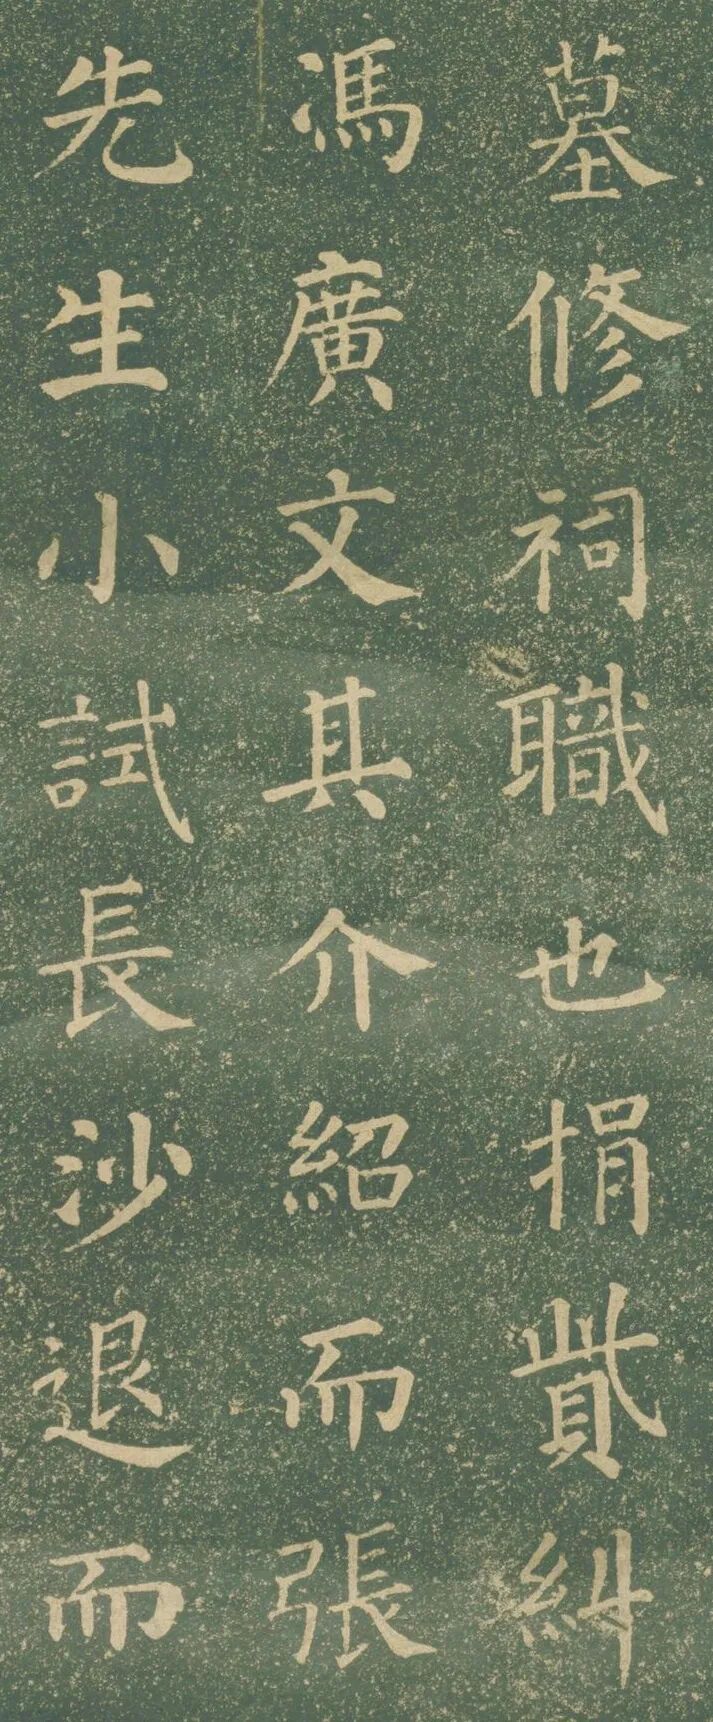 墓修祠職也捐貲糾
馮廣文其介紹而張
先生小試長沙退而